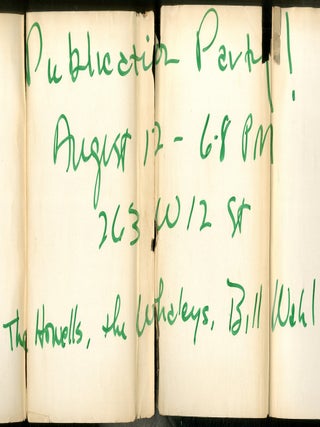 Publication Party!
August 12 - 6-8 PM
263 W 12 St
The Howells, the Whaleys, Bill Wahl